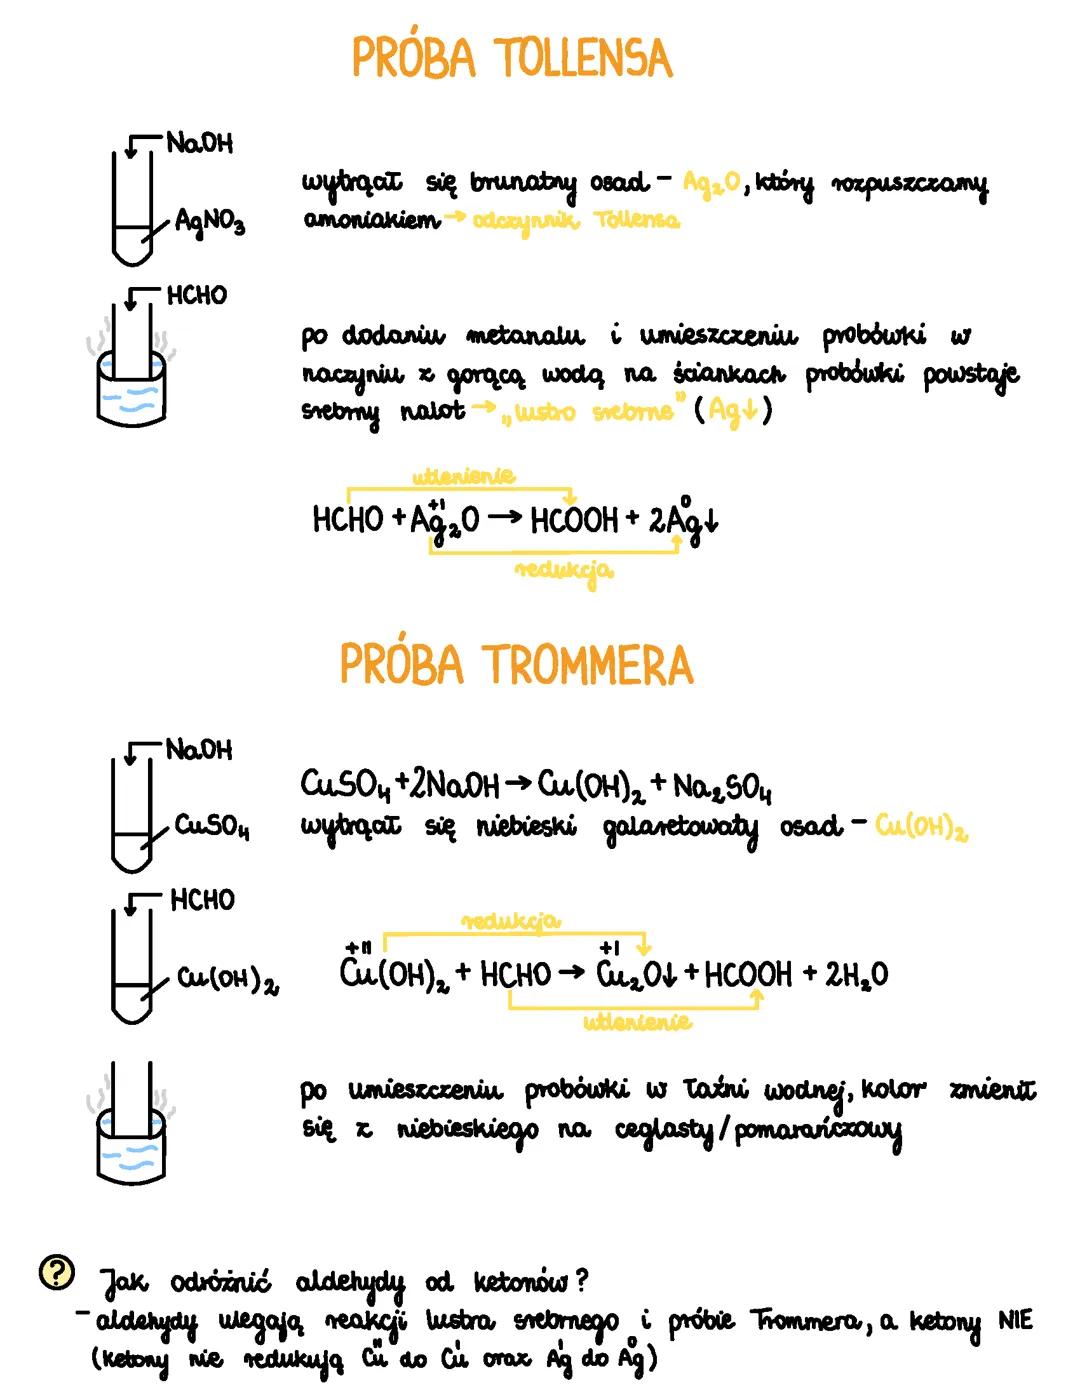 PRÓBA TOLLENSA
NaOH
AgNO₃
wytrącał się brunatny osad - Ag₂O, który rozpuszczamy
amoniakiem → odczynnik Tollensa
HCHO
po dodaniu metanalu i umieszczeniu probówki w
naczyniu z gorącą wodą na ściankach probówki powstaje
srebrny nalot → „lustro srebrne" (Ag↓)
utlenienie
+I 0
HCHO + Ag₂O → HCOOH + 2Ag↓
redukcja
PRÓBA TROMMERA
NaOH
CuSO₄
CuSO₄ + 2NaOH → Cu(OH)₂ + Na₂SO₄
wytrącał się niebieski galaretowaty osad - Cu(OH)₂
HCHO
Cu(OH)₂
redukcja
+II +I
Cu(OH)₂ + HCHO → Cu₂O↓ + HCOOH + 2H₂O
utlenienie
po umieszczeniu probówki w łaźni wodnej, kolor zmienił
się z niebieskiego na ceglasty/pomarańczowy
? Jak odróżnić aldehydy od ketonów?
- aldehydy ulegają reakcji lustra srebrnego i próbie Trommera, a ketony NIE
II I I 0
(ketony nie redukują Cu do Cu oraz Ag do Ag)